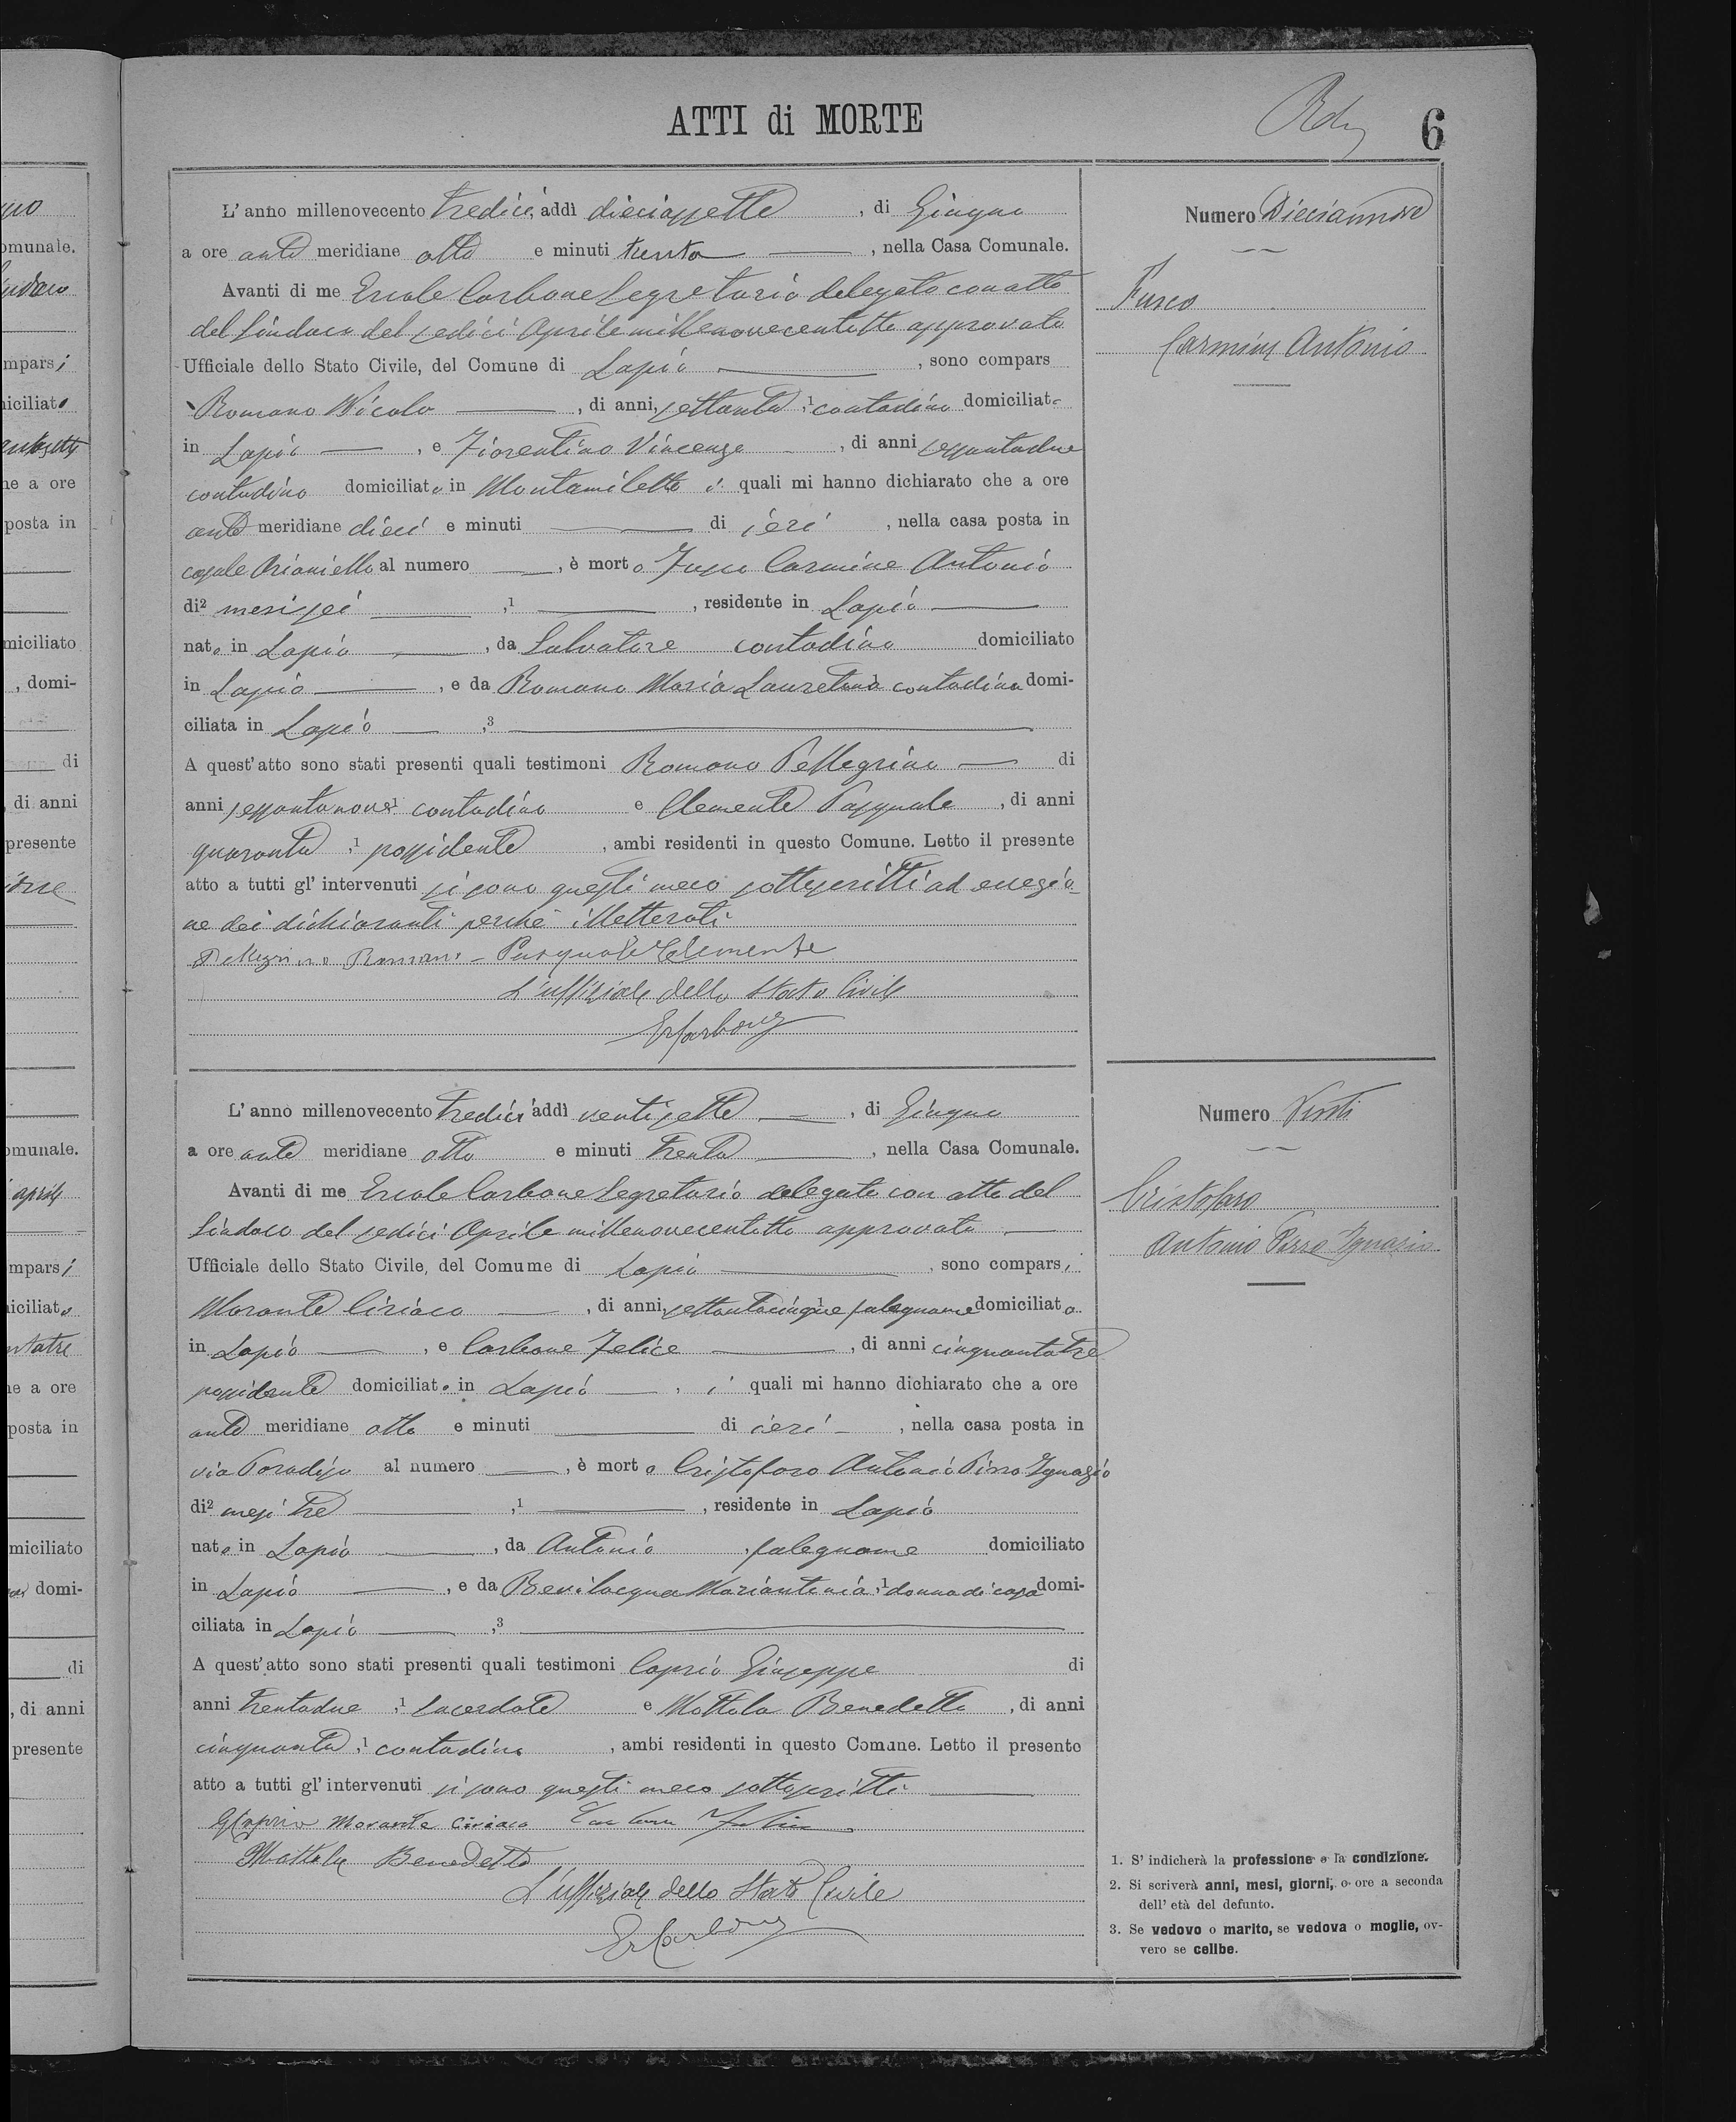 ATTI di MORTE
6
L'anno millenovecento tredici, addì diciassette, di Giugno
a ore ante meridiane otto e minuti trenta, nella Casa Comunale.
Avanti di me Ercole Carbone Segretario delegato con atto
del Sindaco del sedici Aprile millenovecentotto approvato
Ufficiale dello Stato Civile, del Comune di Lapio, sono compars
Romano Nicola, di anni settanta,1 contadino domiciliato
in Lapio, e Fiorentino Vincenzo, di anni sessantadue
contadino domiciliato in Montemiletto i quali mi hanno dichiarato che a ore
ante meridiane dieci e minuti di ieri, nella casa posta in
casale Arianiello al numero, è morto Fusco Carmine Antonio
di2 mesi sei,1, residente in Lapio
nato in Lapio, da Salvatore contadino domiciliato
in Lapio, e da Romano Maria Lauretana contadina domi-
ciliata in Lapio,3
A quest'atto sono stati presenti quali testimoni Romano Pellegrino di
anni sessantanove,1 contadino e Clemente Pasquale, di anni
quaranta,1 possidente, ambi residenti in questo Comune. Letto il presente
atto a tutti gl'intervenuti si sono questi meco sottoscritti ad eccezio-
ne dei dichiaranti perchè illetterati
Pellegrino Romano - Pasquale Clemente
L'uffiziale dello Stato Civile
ErCarbone
Numero Diciannove
Fusco
Carmine Antonio
L'anno millenovecento tredici addì ventisette, di Giugno
a ore ante meridiane otto e minuti trenta, nella Casa Comunale.
Avanti di me Ercole Carbone Segretario delegato con atto del
Sindaco del sedici Aprile millenovecentotto approvato
Ufficiale dello Stato Civile, del Comume di Lapio, sono comparsi
Morante Ciriaco, di anni settantacinque,1 falegname domiciliato
in Lapio, e Carbone Felice, di anni cinquantatre
possidente domiciliato in Lapio, i quali mi hanno dichiarato che a ore
ante meridiane otto e minuti di ieri, nella casa posta in
via Paradiso al numero, è morto Cristofaro Antonio Pirro Ignazio
di2 mesi tre,1, residente in Lapio
nato in Lapio, da Antonio, falegname domiciliato
in Lapio, e da Bevilacqua Mariantonia,1 donna di casa domi-
ciliata in Lapio,3
A quest'atto sono stati presenti quali testimoni Caprio Giuseppe di
anni trentadue,1 Sacerdote e Mottola Benedetto, di anni
cinquanta,1 contadino, ambi residenti in questo Comune. Letto il presento
atto a tutti gl'intervenuti si sono questi meco sottoscritti
GCaprio Morante Ciriaco Carbone Felice
Mottola Benedetto
L'uffiziale dello Stato Civile
ErCarbone
Numero Venti
Cristofaro
Antonio Pirro Ignazio
1. S'indicherà la professione o la condizione.
2. Si scriverà anni, mesi, giorni, o ore a seconda
dell'età del defunto.
3. Se vedovo o marito, se vedova o moglie, ov-
vero se celibe.